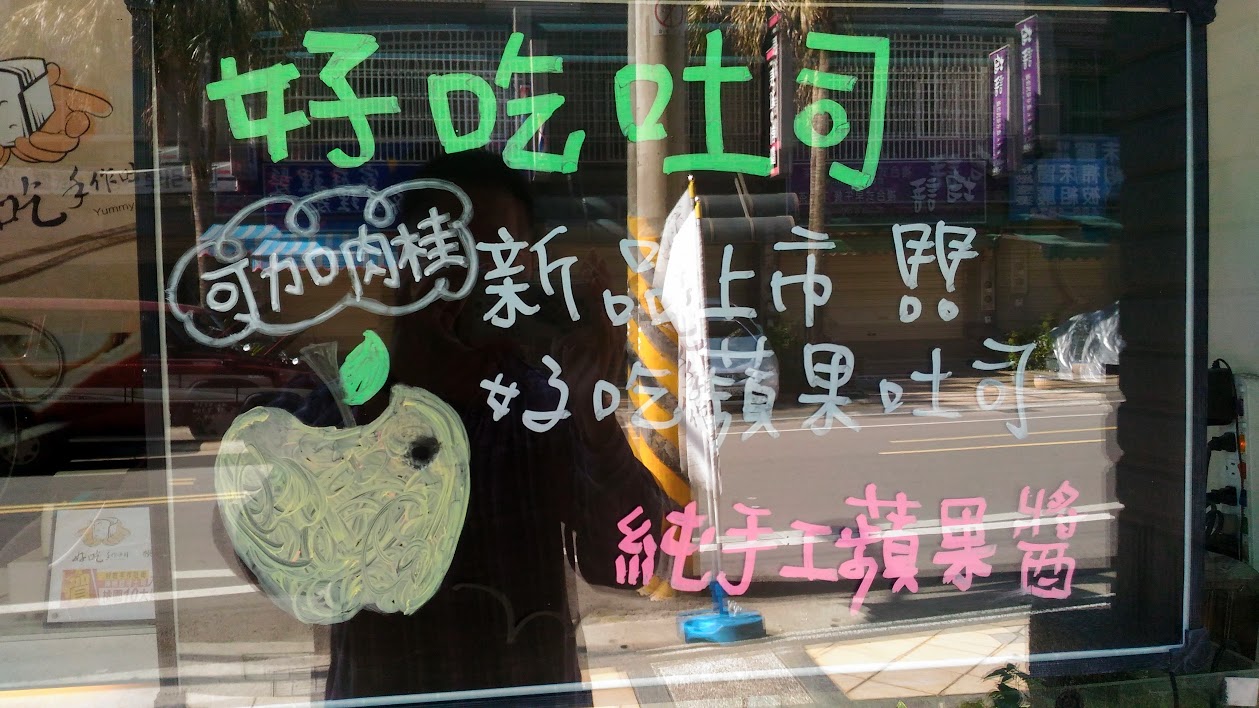 好吃吐司
可加肉桂
新品上市!!
好吃蘋果吐司
純手工蘋果醬
吃 手作
Yummy